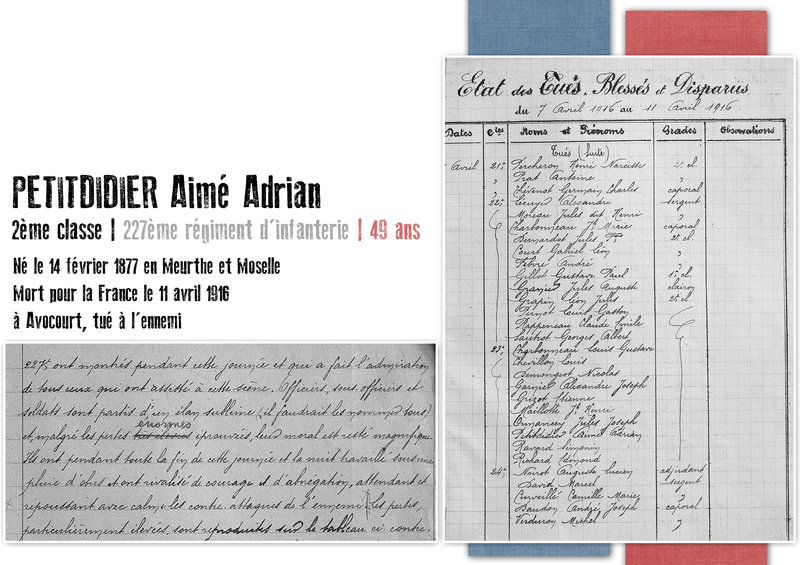 PETITDIDIER Aimé Adrian
2ème classe | 227ème régiment d'infanterie | 49 ans
Né le 14 février 1877 en Meurthe et Moselle
Mort pour la France le 11 avril 1916
à Avocourt, tué à l'ennemi
227e, ont montrés pendant cette journée et qui a fait l'admiration
de tous ceux qui ont assisté à cette scène. Officiers, sous officiers et
soldats sont partis d'un élan sublime (il faudrait les nommer tous)
enormes
et malgré les pertes éprouvés, leur moral est resté magnifique.
Ils ont pendant toute la fin de cette journée et la nuit travaillé sous une
pluie d'obus et ont rivalisé de courage et d'abnégation, attendant et
repoussant avec calme les contre-attaques de l'ennemi les pertes,
particulièrement élevées, sont reproduites sur le tableau ci-contre.
Etat des Tués, Blessés et Disparus
du 7 Avril 1916 au 11 Avril 1916.
Dates Cies Noms et Prénoms Grades Observations
Tués (suite)
Avril 21e Percheron Henri Narcisse 2e cl.
Prat Antoine
Thévenot Germain Charles caporal
22e Alexandre sergent
Moreau Jules dit Henri
Charbonneau Marie caporal
Bernardot Jules 2e cl.
Court Gabriel Léon
Febvre André
Gillot Gustave Paul 1e cl.
Granjer Jules Auguste clairon
Grapin Léon Jules 2e cl.
Pernot Louis Gaston
Rappeneau Claude Emile
Georges Albert
23e Charbonneau Louis Gustave
Chevillon Louis
Demongeot Nicolas
Garnier Alexandre Joseph
Grizot Etienne
Maillotte Henri
Ormancey Jules Joseph
Petitdidier Aimé Adrian
Ravard Simonin
Richard Edmond
24e Noirot Auguste Lucien adjudant
David Marcel sergent
Curveillé Camille Marie
Baudon André Joseph caporal
Verduron Michel